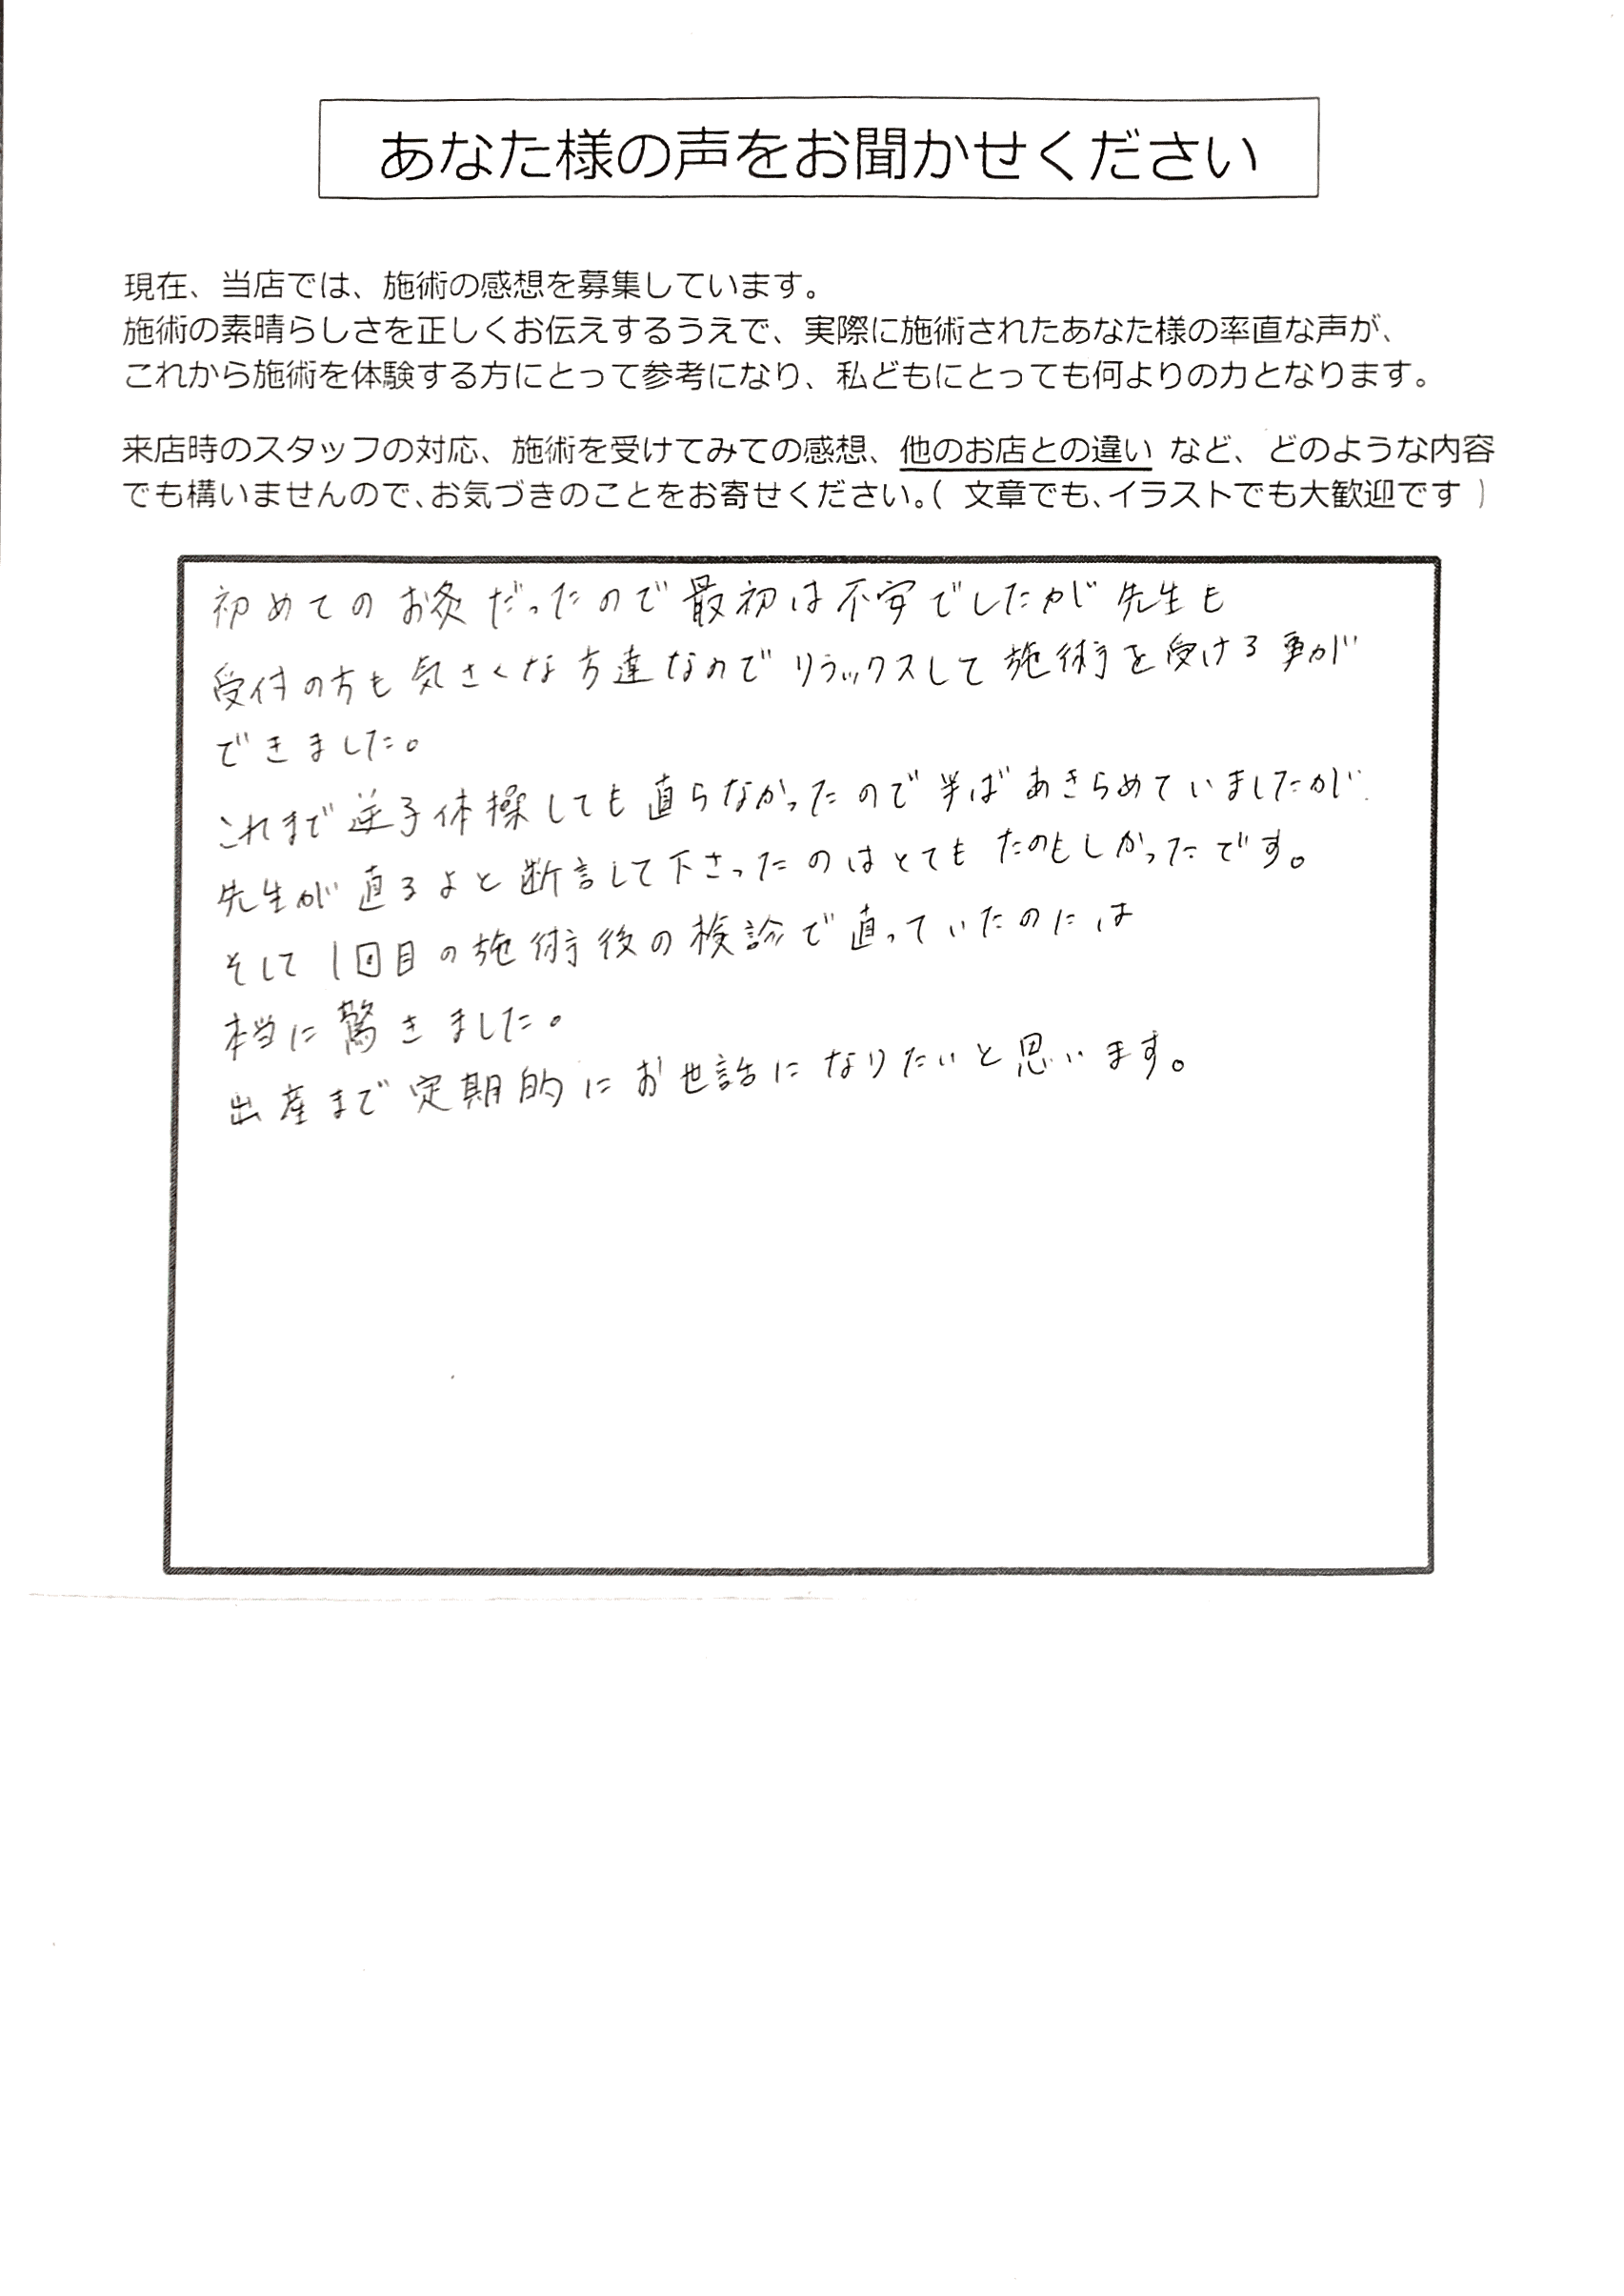 あなた様の声をお聞かせください
現在、当店では、施術の感想を募集しています。
施術の素晴らしさを正しくお伝えするうえで、実際に施術されたあなた様の率直な声が、
これから施術を体験する方にとって参考になり、私どもにとっても何よりの力となります。
来店時のスタッフの対応、施術を受けてみての感想、他のお店との違い など、どのような内容
でも構いませんので、お気づきのことをお寄せください。( 文章でも、イラストでも大歓迎です )
初めてのお灸だったので最初は不安でしたが先生も
受付の方も気さくな方達なのでリラックスして施術を受ける事が
できました。
これまで逆子体操しても直らなかったので半ばあきらめていましたが
先生が直るよと断言して下さったのはとてもたのもしかったです。
そして1回目の施術後の検診で直っていたのには
本当に驚きました。
出産まで定期的にお世話になりたいと思います。